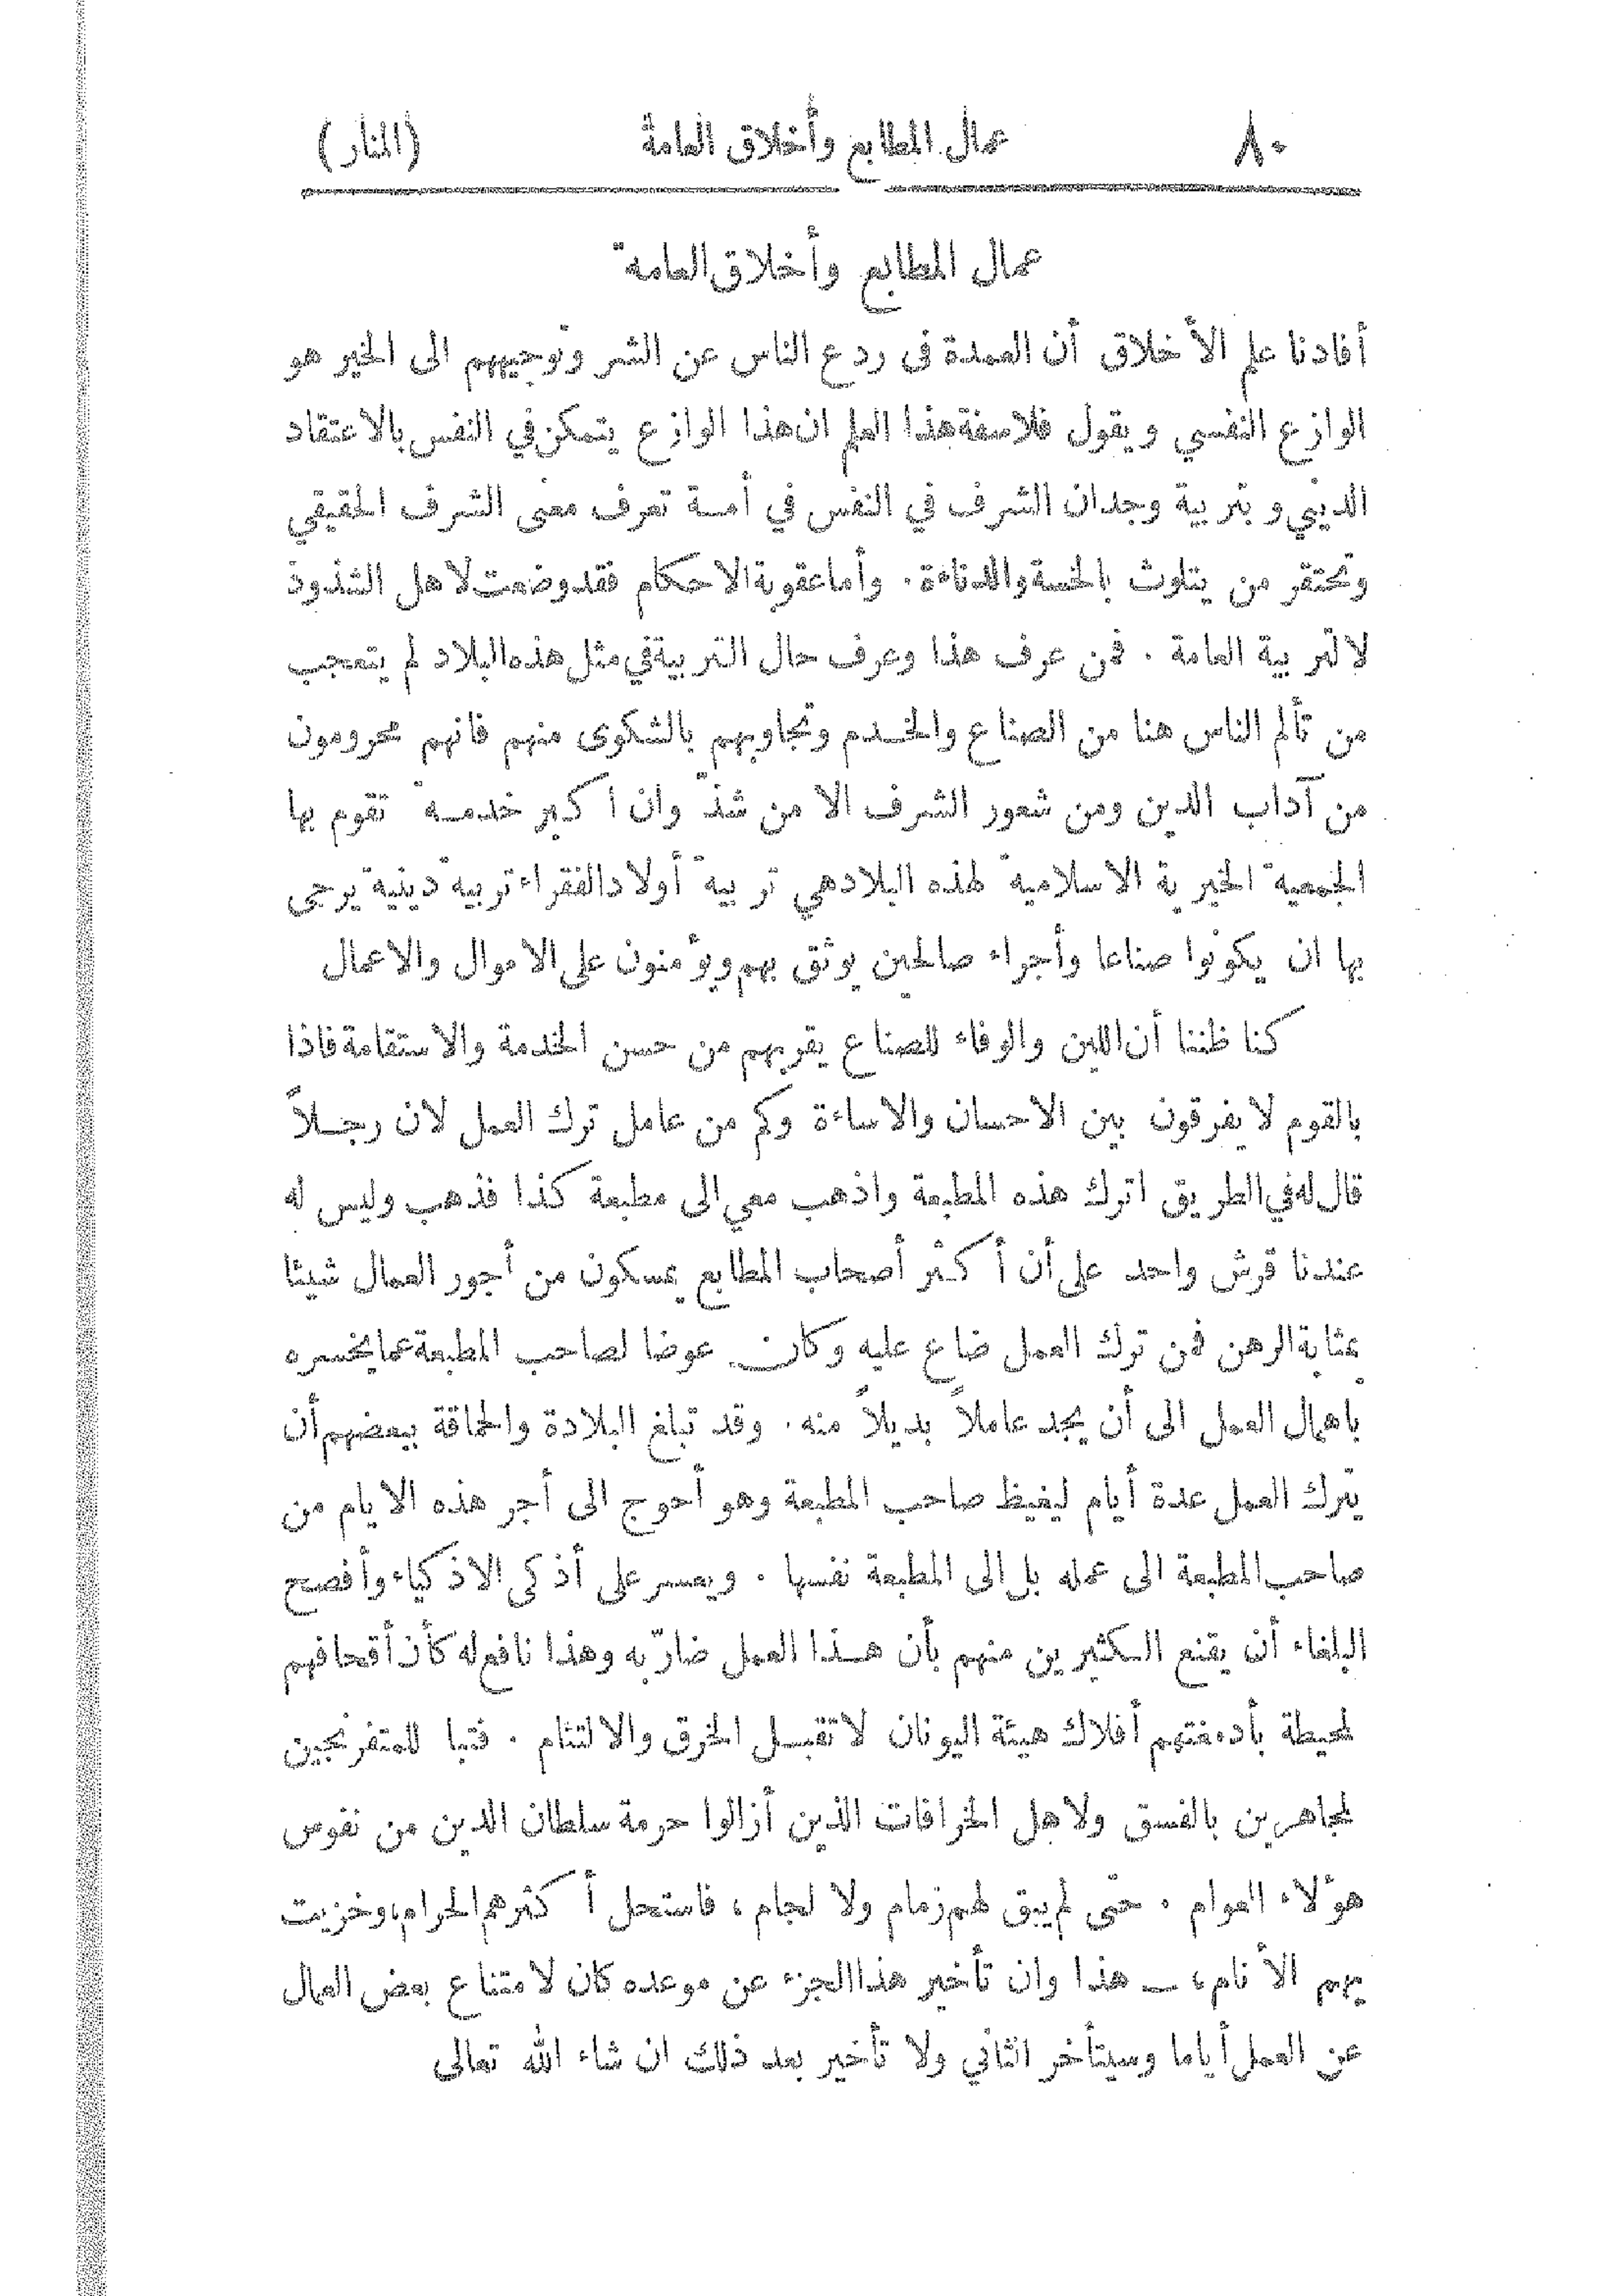 ٨٠ عمال المطابع وأخلاق العامة (المنار)
عمال المطابع وأخلاق العامة
أفادنا علم الأخلاق أن العمدة فى ردع الناس عن الشر وتوجيههم الى الخير هو
الوازع النفسي ويقول فلاسفة هذا العلم ان هذا الوازع يتمكن في النفس بالاعتقاد
الديني وبتربية وجدان الشرف في النفس في أمة تعرف معنى الشرف الحقيقي
وتحتقر من يتلوث بالخسة والدناءة . وأما عقوبة الاحكام فقد وضعت لاهل الشذوذ
لا لتربية العامة . فمن عرف هذا وعرف حال التربية في مثل هذه البلاد لم يتعجب
من تألم الناس هنا من الصناع والخدم وتجاوبهم بالشكوى منهم فانهم محرومون
من آداب الدين ومن شعور الشرف الا من شذّ وان أكبر خدمة تقوم بها
الجمعية الخيرية الاسلامية لهذه البلاد هي تربية أولاد الفقراء تربية دينية يرجى
بها ان يكونوا صناعا وأجراء صالحين يوثق بهم ويؤمنون على الاموال والاعمال
كنا ظننا أن اللين والوفاء للصناع يقربهم من حسن الخدمة والاستقامة فاذا
بالقوم لا يفرقون بين الاحسان والاساءة وكم من عامل ترك العمل لان رجلاً
قال له في الطريق اترك هذه المطبعة واذهب معي الى مطبعة كذا فذهب وليس له
عندنا قرش واحد على أن أكثر أصحاب المطابع يمسكون من أجور العمال شيئا
بمثابة الرهن فمن ترك العمل ضاع عليه وكان عوضا لصاحب المطبعة عما يخسره
باهمال العمل الى أن يجد عاملاً بديلاً منه . وقد تبلغ البلادة والحماقة ببعضهم أن
يترك العمل عدة أيام ليغيظ صاحب المطبعة وهو أحوج الى أجر هذه الايام من
صاحب المطبعة الى عمله بل الى المطبعة نفسها . ويعسر على أذكى الاذكياء وأفصح
البلغاء أن يقنع الكثيرين منهم بأن هذا العمل ضارّ به وهذا نافع له كأن أقحافهم
لمحيطة بأدمغتهم أفلاك هيئة اليونان لا تقبل الخرق والالتئام . فتبا للمتفرنجين
لمجاهرين بالفسق ولاهل الخرافات الذين أزالوا حرمة سلطان الدين من نفوس
هؤلاء العوام . حتى لم يبق لهم زمام ولا لجام ، فاستحل أكثرهم الحرام ، وخزيت
بهم الأنام ، — هذا وان تأخير هذا الجزء عن موعده كان لامتناع بعض العمال
عن العمل أياما وسيتأخر الثاني ولا تأخير بعد ذلك ان شاء الله تعالى